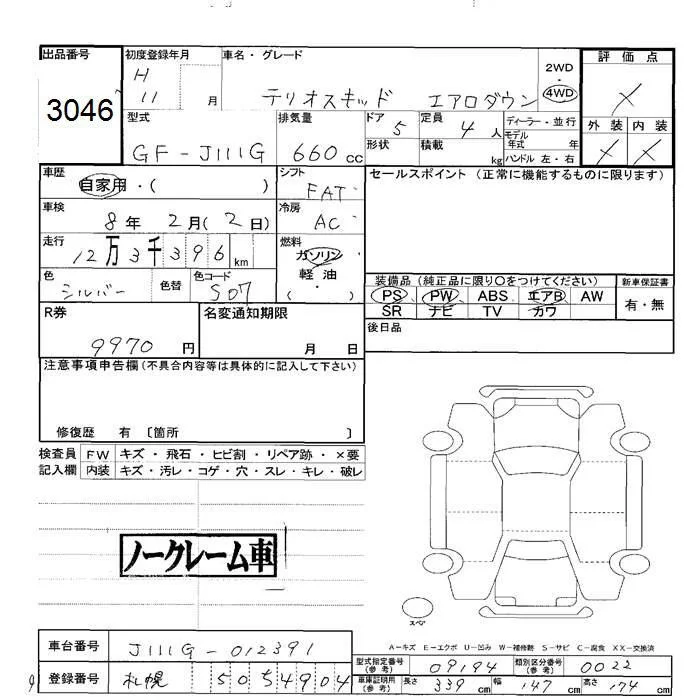 出品番号
3046
初度登録年月
H
11 月
車名・グレード
テリオスキッド エアロダウン
2WD
・
4WD
評価点
×
外装 内装
× ×
型式
GF-J111G
排気量
660 cc
ドア 5
定員 4 人
形状
積載 kg
ディーラー・並行
モデル年式 年
ハンドル 左・右
車歴
自家用・( )
シフト
FAT
セールスポイント(正常に機能するものに限ります)
車検
8年 2月(2日)
冷房
AC
走行
12万3千396km
燃料
ガソリン
軽油
( )
色
シルバー
色替
色コード
S07
装備品(純正品に限り○をつけてください)
PS PW ABS エアB AW
SR ナビ TV カワ
新車保証書
有・無
R券
9970円
名変通知期限
月 日
後日品
注意事項申告欄(不具合内容等は具体的に記入して下さい)
修復歴 有 〔箇所 〕
検査員記入欄
FW キズ・飛石・ヒビ割・リペア跡・×要
内装 キズ・汚レ・コゲ・穴・スレ・キレ・破レ
ノークレーム車
スペア
A=キズ E=エクボ U=凹み W=補修跡 S=サビ C=腐食 XX=交換済
車台番号
J111G-012391
登録番号
札幌 50 5 4904
型式指定番号(参考)
09194
類別区分番号(参考)
0022
車庫証明用(参考)
長さ 339cm
幅 147cm
高さ 174cm